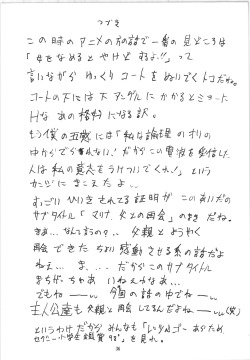 つづき
この時のアニメの方の話で一番の見どころは
「女をなめるとやけどするよ!!」って
言いながらゆっくりコートをぬいでくトコだがね。
コートの下には下アンダルにかかると
Hなあの格好になる訳。
もう僕の五感には「私は論理のオリの
中から でられない! だからこの電波を受信した
人は私の意志をうけついでくれ!」という
かんじにきこえたよ…
すっごいひいきされてる証明がこのあいだの
サブタイトル「マリナ 父との再会」の巻だね。
きぁ…なんて言うの?… 父親とようやく
再会できたちょい感動させる系の話だよ
ねぇ… ま… だからこのサブタイトル
まちがっちゃあいねぇんだなあ…
でもねー 今回の話の中でねー
主人公達も父親と再会してるんだよねー (笑)
というわけだからみんなも
セクシー小学生鑑賞 98'」を見れ。